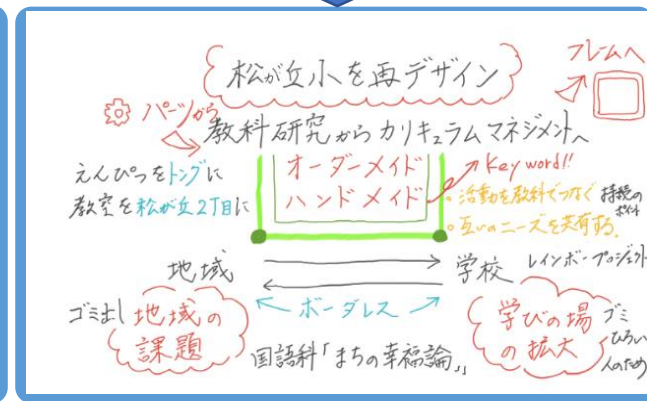 松が丘小を再デザイン
フレームへ
パーツから
教科研究からカリキュラムマネジメントへ
えんぴつをトングに
教室を松が丘2丁目に
オーダーメイド
ハンドメイド
Key word!!
・活動を教科でつなぐ
・互いのニーズを共有する。
持続の
ポイント
地域
学校
レインボープロジェクト
ボーダレス
ゴミ出し
地域の
課題
国語科「まちの幸福論」
学びの場
の拡大
ゴミ
ひろい
人のため